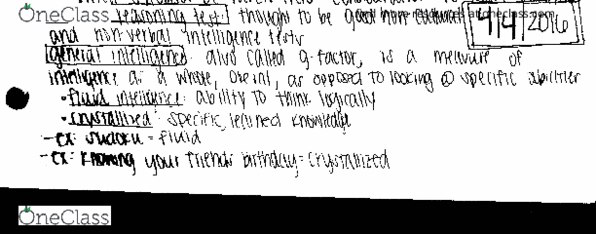 OneClass
reasoning test: thought to be good non
9/4/2016
and non-verbal intelligence tests
general intelligence: also called g-factor, is a measure of
intelligence as a whole, overall, as opposed to looking @ specific abilities
• fluid intelligence: ability to think logically
• crystallized: specific, learned knowledge
- ex: sudoku = fluid
- ex: knowing your friends birthday = crystallized
OneClass